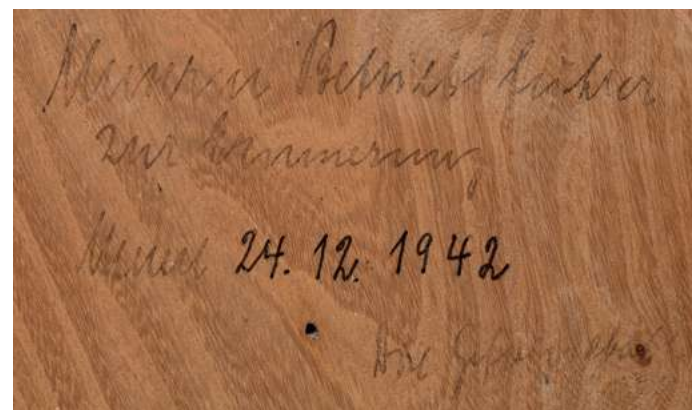 Unserem Betriebsführer
zur Erinnerung
Memel 24.12.1942
Die Gefolgschaft